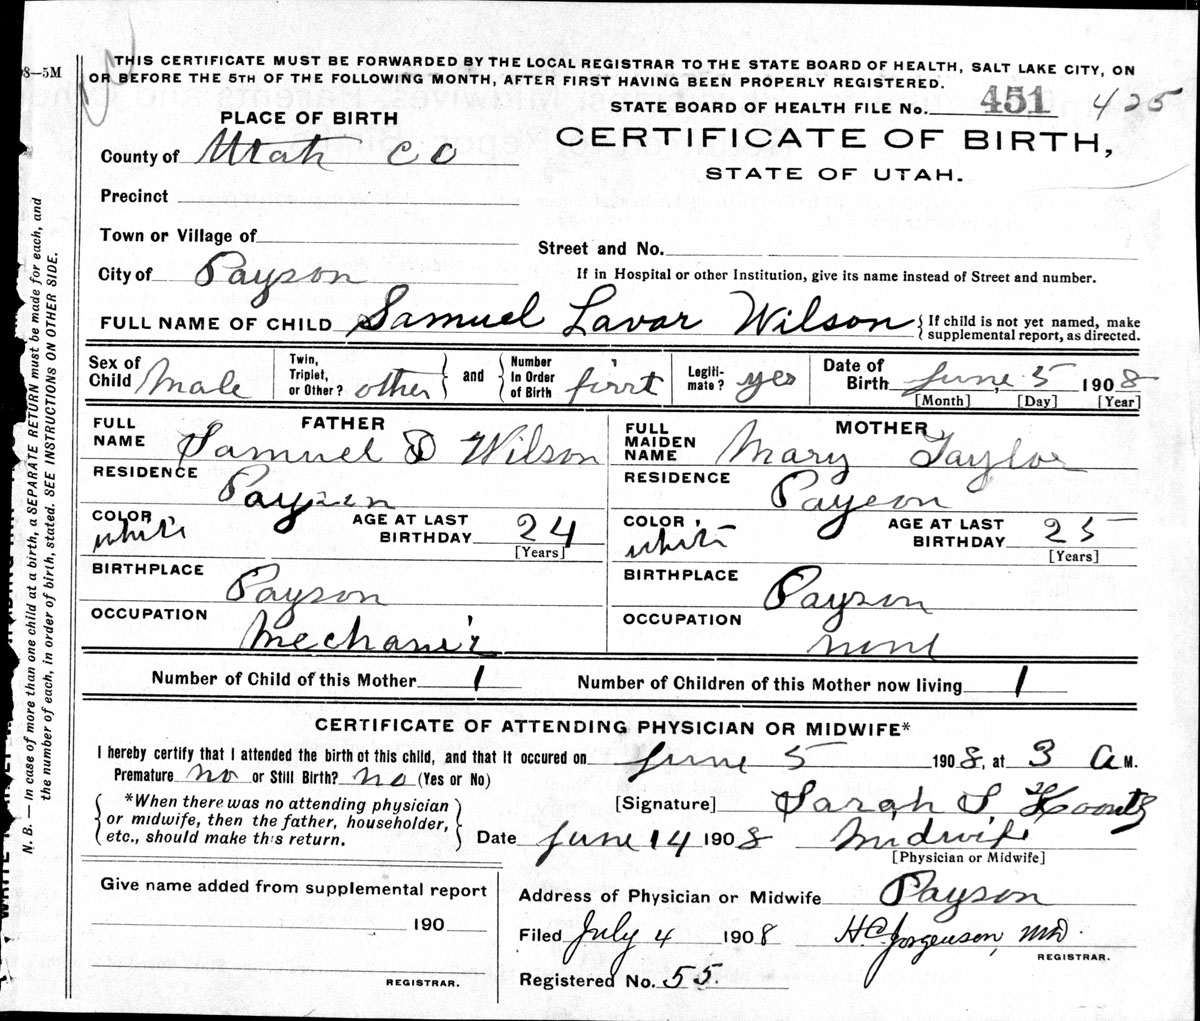 08—5M
THIS CERTIFICATE MUST BE FORWARDED BY THE LOCAL REGISTRAR TO THE STATE BOARD OF HEALTH, SALT LAKE CITY, ON
OR BEFORE THE 5TH OF THE FOLLOWING MONTH, AFTER FIRST HAVING BEEN PROPERLY REGISTERED.
STATE BOARD OF HEALTH FILE No. 451 425
PLACE OF BIRTH
CERTIFICATE OF BIRTH,
STATE OF UTAH.
County of Utah Co
Precinct
Town or Village of
Street and No.
City of Payson
If in Hospital or other Institution, give its name instead of Street and number.
FULL NAME OF CHILD Samuel Lavar Wilson { If child is not yet named, make
supplemental report, as directed.
Sex of Child Male
Twin, Triplet, or Other? other } and { Number In Order of Birth first
Legiti-mate? yes
Date of Birth June 5 1908
[Month] [Day] [Year]
FATHER
FULL NAME Samuel D Wilson
RESIDENCE Payson
COLOR white
AGE AT LAST BIRTHDAY 24
[Years]
BIRTHPLACE Payson
OCCUPATION Mechanic
MOTHER
FULL MAIDEN NAME Mary Taylor
RESIDENCE Payson
COLOR white
AGE AT LAST BIRTHDAY 25
[Years]
BIRTHPLACE Payson
OCCUPATION none
Number of Child of this Mother 1 Number of Children of this Mother now living 1
CERTIFICATE OF ATTENDING PHYSICIAN OR MIDWIFE*
I hereby certify that I attended the birth of this child, and that it occured on June 5 1908, at 3 A M.
Premature no or Still Birth? no (Yes or No)
{ *When there was no attending physician
or midwife, then the father, householder,
etc., should make this return. }
[Signature] Sarah S Koontz
Date June 14 1908 Midwife
[Physician or Midwife]
Give name added from supplemental report
190
REGISTRAR.
Address of Physician or Midwife Payson
Filed July 4 1908 H.C. Jorgenson, MD.
REGISTRAR.
Registered No. 55.
N. B. — In case of more than one child at a birth, a SEPARATE RETURN must be made for each, and
the number of each, in order of birth, stated. SEE INSTRUCTIONS ON OTHER SIDE.